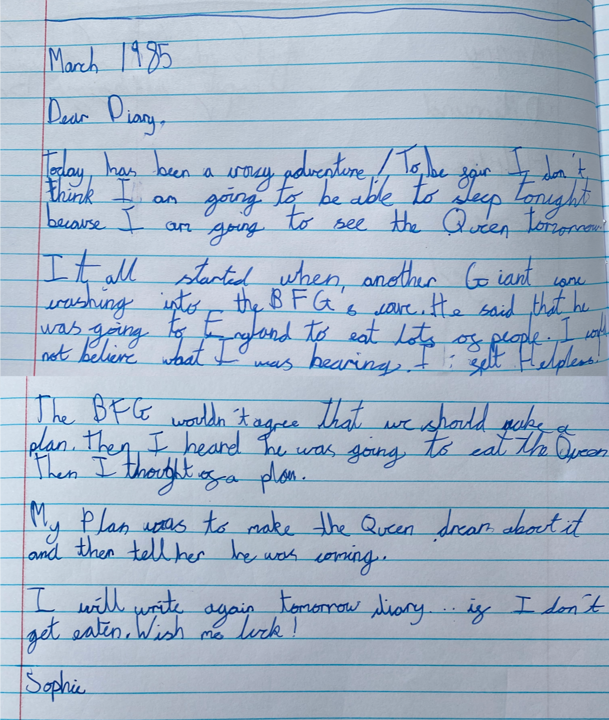 March 1985
Dear Diary,
Today has been a crazy adventure! To be fair I don't
think I am going to be able to sleep tonight
because I am going to see the Queen tomorrow!
It all started when, another Giant came
crashing into the BFG's cave. He said that he
was going to England to eat lots of people. I could
not believe what I was hearing. I felt Helpless!
The BFG wouldn't agree that we should make a
plan. Then I heard he was going to eat the Queen
Then I thought of a plan.
My Plan was to make the Queen dream about it
and then tell her he was coming.
I will write again tomorrow diary... if I don't
get eaten. Wish me luck!
Sophie